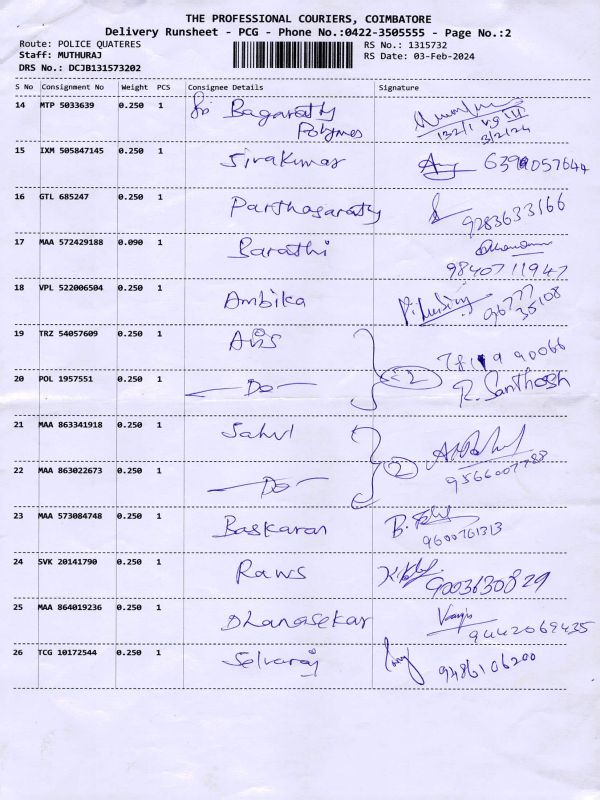 THE PROFESSIONAL COURIERS, COIMBATORE
Delivery Runsheet - PCG - Phone No.:0422-3505555 - Page No.:2
Route: POLICE QUATERES RS No.: 1315732
Staff: MUTHURAJ RS Date: 03-Feb-2024
DRS No.: DCJB131573202
S No Consignment No Weight PCS Consignee Details Signature
14 MTP 5033639 0.250 1 Sri Bagarathy
Polymes
132/1
3/2/24
15 IXM 505847145 0.250 1 Sivakumar
16 GTL 685247 0.250 1 Parthasarathy
9283633166
17 MAA 572429188 0.090 1 Barathi
9840711947
18 VPL 522006504 0.250 1 Ambika
96777
35108
19 TRZ 54057609 0.250 1
90066
20 POL 1957551 0.250 1 Do 2 R. Santhosh
21 MAA 863341918 0.250 1 Sahul
22 MAA 863022673 0.250 1 Do 2
9566007788
23 MAA 573084748 0.250 1 Baskaran
9600761313
24 SVK 20141790 0.250 1 Raws 9003630829
25 MAA 864019236 0.250 1 Dhanasekar
9442069435
26 TCG 10172544 0.250 1 Selvaraj 9486106200